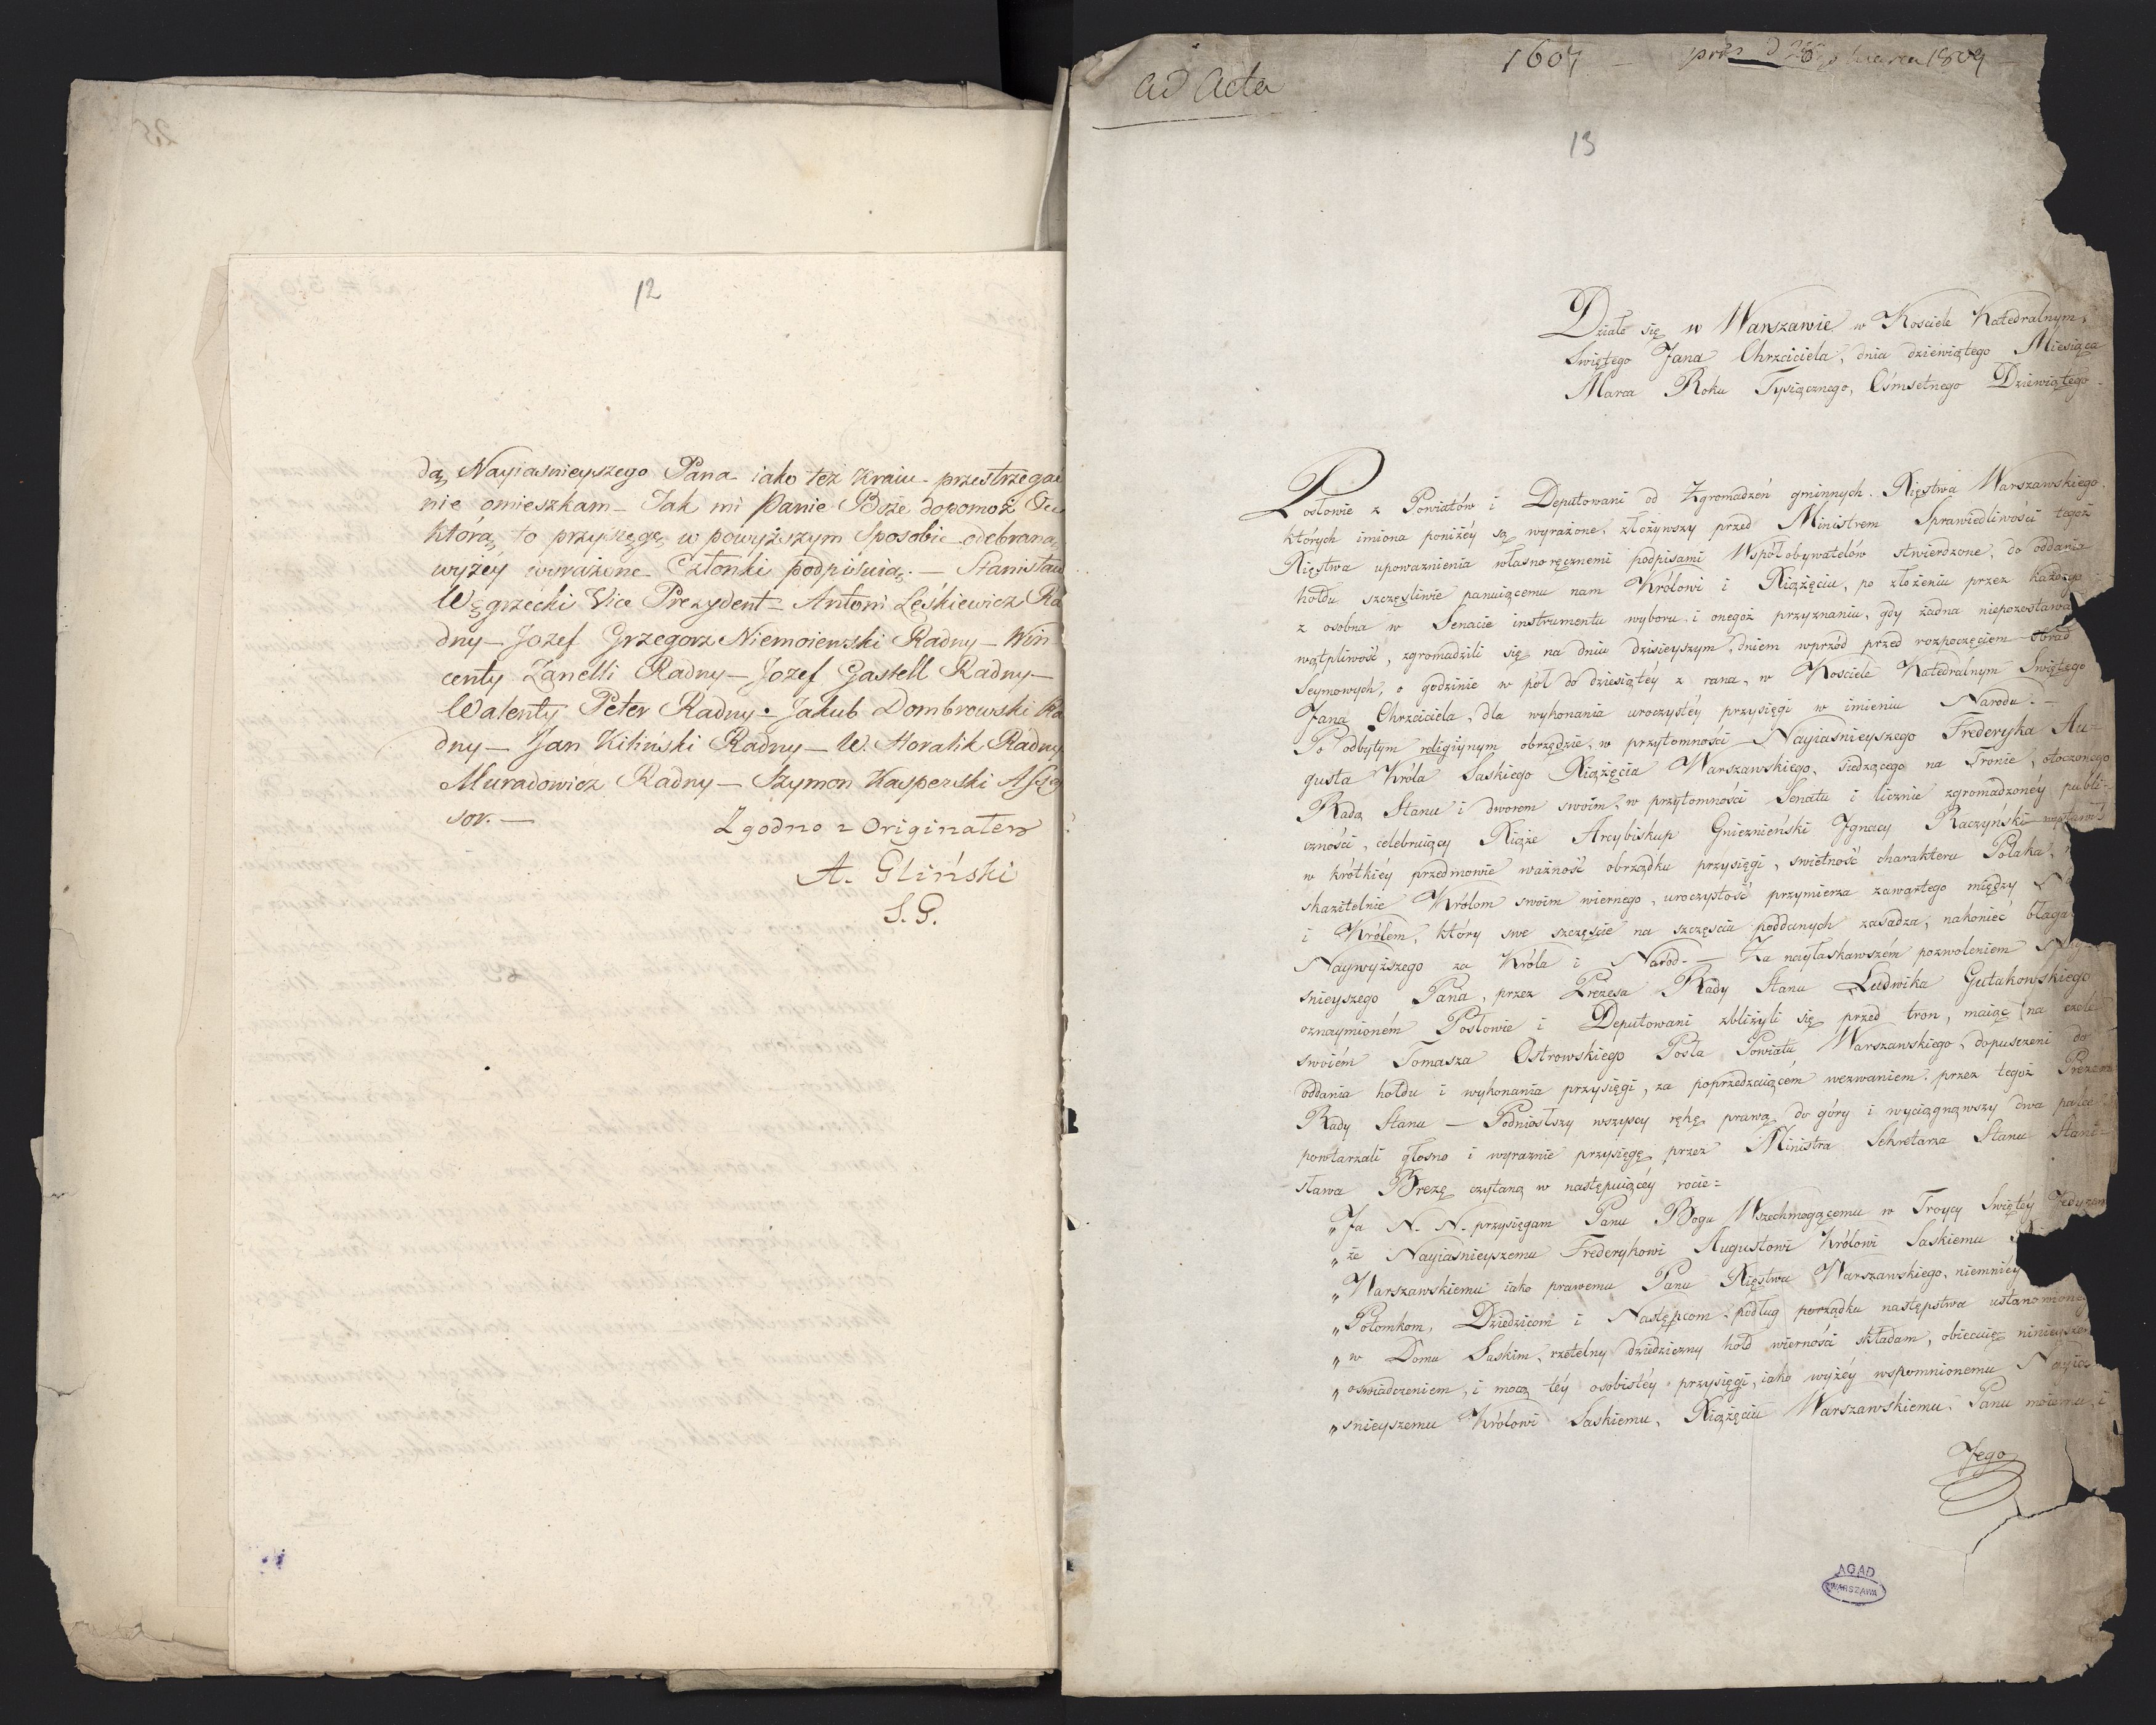 12
dą Nayiasnieyszego Pana iako też Kraiu przestrzegać
nie omieszkam – Jak mi Panie Boże dopomoż
którą to przysięgę w powyższym Sposobie odebraną
wyżey wyrażone Członki podpisuią. – Stanisław
Węgrzecki Vice Prezydent – Antoni Leśkiewicz Ra
dny – Jozef Grzegorz Niemoiewski Radny – Win
centy Zanelli Radny – Jozef Gastell Radny –
Walenty Peter Radny – Jakub Dombrowski Ra
dny – Jan Kiliński Radny – W. Horalik Radny
Muradowicz Radny – Szymon Kasperski Assę
sor. –
Zgodno z Originałem
A. Gliński
S. G.
ad Acta
1607 – 1809
13
Działo się w Warszawie w Kościele Katedralnym
Swiętego Jana Chrzciciela, dnia dziewiątego Miesiąca
Marca Roku Tysiącznego, Ośmsetnego Dziewiątego.
Posłowie z Powiatów i Deputowani od Zgromadzeń gminnych Xięstwa Warszawskiego,
których imiona poniżéy są wyrażone, złożywszy przed Ministrem Sprawiedliwości tegoż
Xięstwa upoważnienia własnoręcznemi podpisami Współobywatelów stwierdzone, do oddania
hołdu szczęśliwie panuiącemu nam Królowi i Xiążęciu, po złożeniu przez każdego
z osobna w Senacie instrumentu wyboru i onegoż przyznaniu, gdy żadna niepozostawa
wątpliwość, zgromadzili się na dniu dzisieyszym, dniem wprzód przed rozpoczęciem obrad
Seymowych, o godzinie w pół do dziesiątéy z rana, w Kościele Katedralnym Swiętego
Jana Chrzciciela, dla wykonania uroczystéy przysięgi w imieniu Narodu. –
Po odbytym religiynym obrzędzie, w przytomności Nayiaśnieyszego Fryderyka Au=
gusta Króla Saskiego Xiążęcia Warszawskiego, siedzącego na Tronie, otoczonego
Radą Stanu i dworem swoim, w przytomności Senatu i licznie zgromadzonéy publi-
czności, celebruiący Xiąże Arcybiskup Gnieznieński Ignacy Raczyński wystawił
w krótkiéy przedmowie ważność obrządku przysięgi, świetność charakteru Polaka,
skazitelnie Królom swoim wiernego, uroczystość przymierza zawartego między
i Królem, który swe szczęście na szczęściu poddanych zasadza, nakoniec błaga
Naywyższego za Króla i Naród. – Za nayłaskawszém pozwoleniem
śnieyszego Pana, przez Prezesa Rady Stanu Ludwika Gutakowskiego
oznaymioném Posłowie i Deputowani zbliżyli się przed tron, maiąc na czele
swoiém Tomasza Ostrowskiego Posła Powiatu Warszawskiego, dopuszczeni do
oddania hołdu i wykonania przysięgi, za poprzedzaiącém wezwaniem przez tegoż Prezesa
Rady Stanu – Podniosłszy wszyscy rękę prawą do góry i wyciągnąwszy dwa palce
powtarzali głosno i wyraznie przysięgę przez Ministra Sekretarza Stanu Stani=
sława Brezę czytaną w następuiącéy rocie =
„Ja N. N. przysięgam Panu Bogu Wszechmogącemu w Troycy Swiętéy Jedynemu
„że Nayiaśnieyszemu Fryderykowi Augustowi Królowi Saskiemu
„Warszawskiemu iako prawemu Panu Xięstwa Warszawskiego, niemniéy
„Potomkom, Dziedzicom i Następcom podług porządku następstwa ustanowionego
„w Domu Saskim, rzetelny dziedziczny hołd wierności składam, obiecuię ninieyszem
„oświadczeniem, i mocą téy osobistéy przysięgi, iako wyżéy wspomnionemu Nayia
„snieyszemu Królowi Saskiemu, Xiążęciu Warszawskiemu, Panu moiemu, i
Jego
AGAD
WARSZAWA